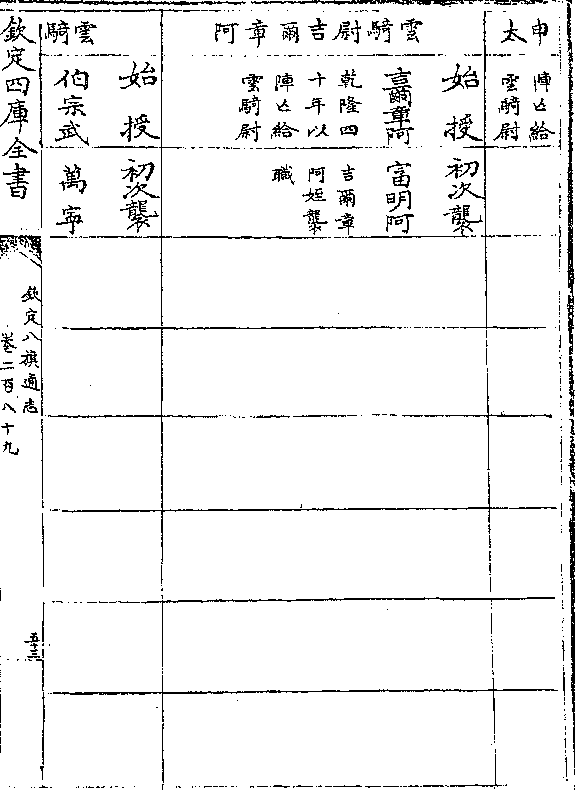 申太
陣亡給
雲騎尉
雲騎尉吉爾章阿
始授
吉爾章阿
乾隆四
十年以
陣亡給
雲騎尉
初次襲
富明阿
吉爾章
阿姪襲
職
雲騎
始授
伯宗武
初次襲
萬寧
欽定四庫全書
欽定八旗通志
卷二百八十九
五十三